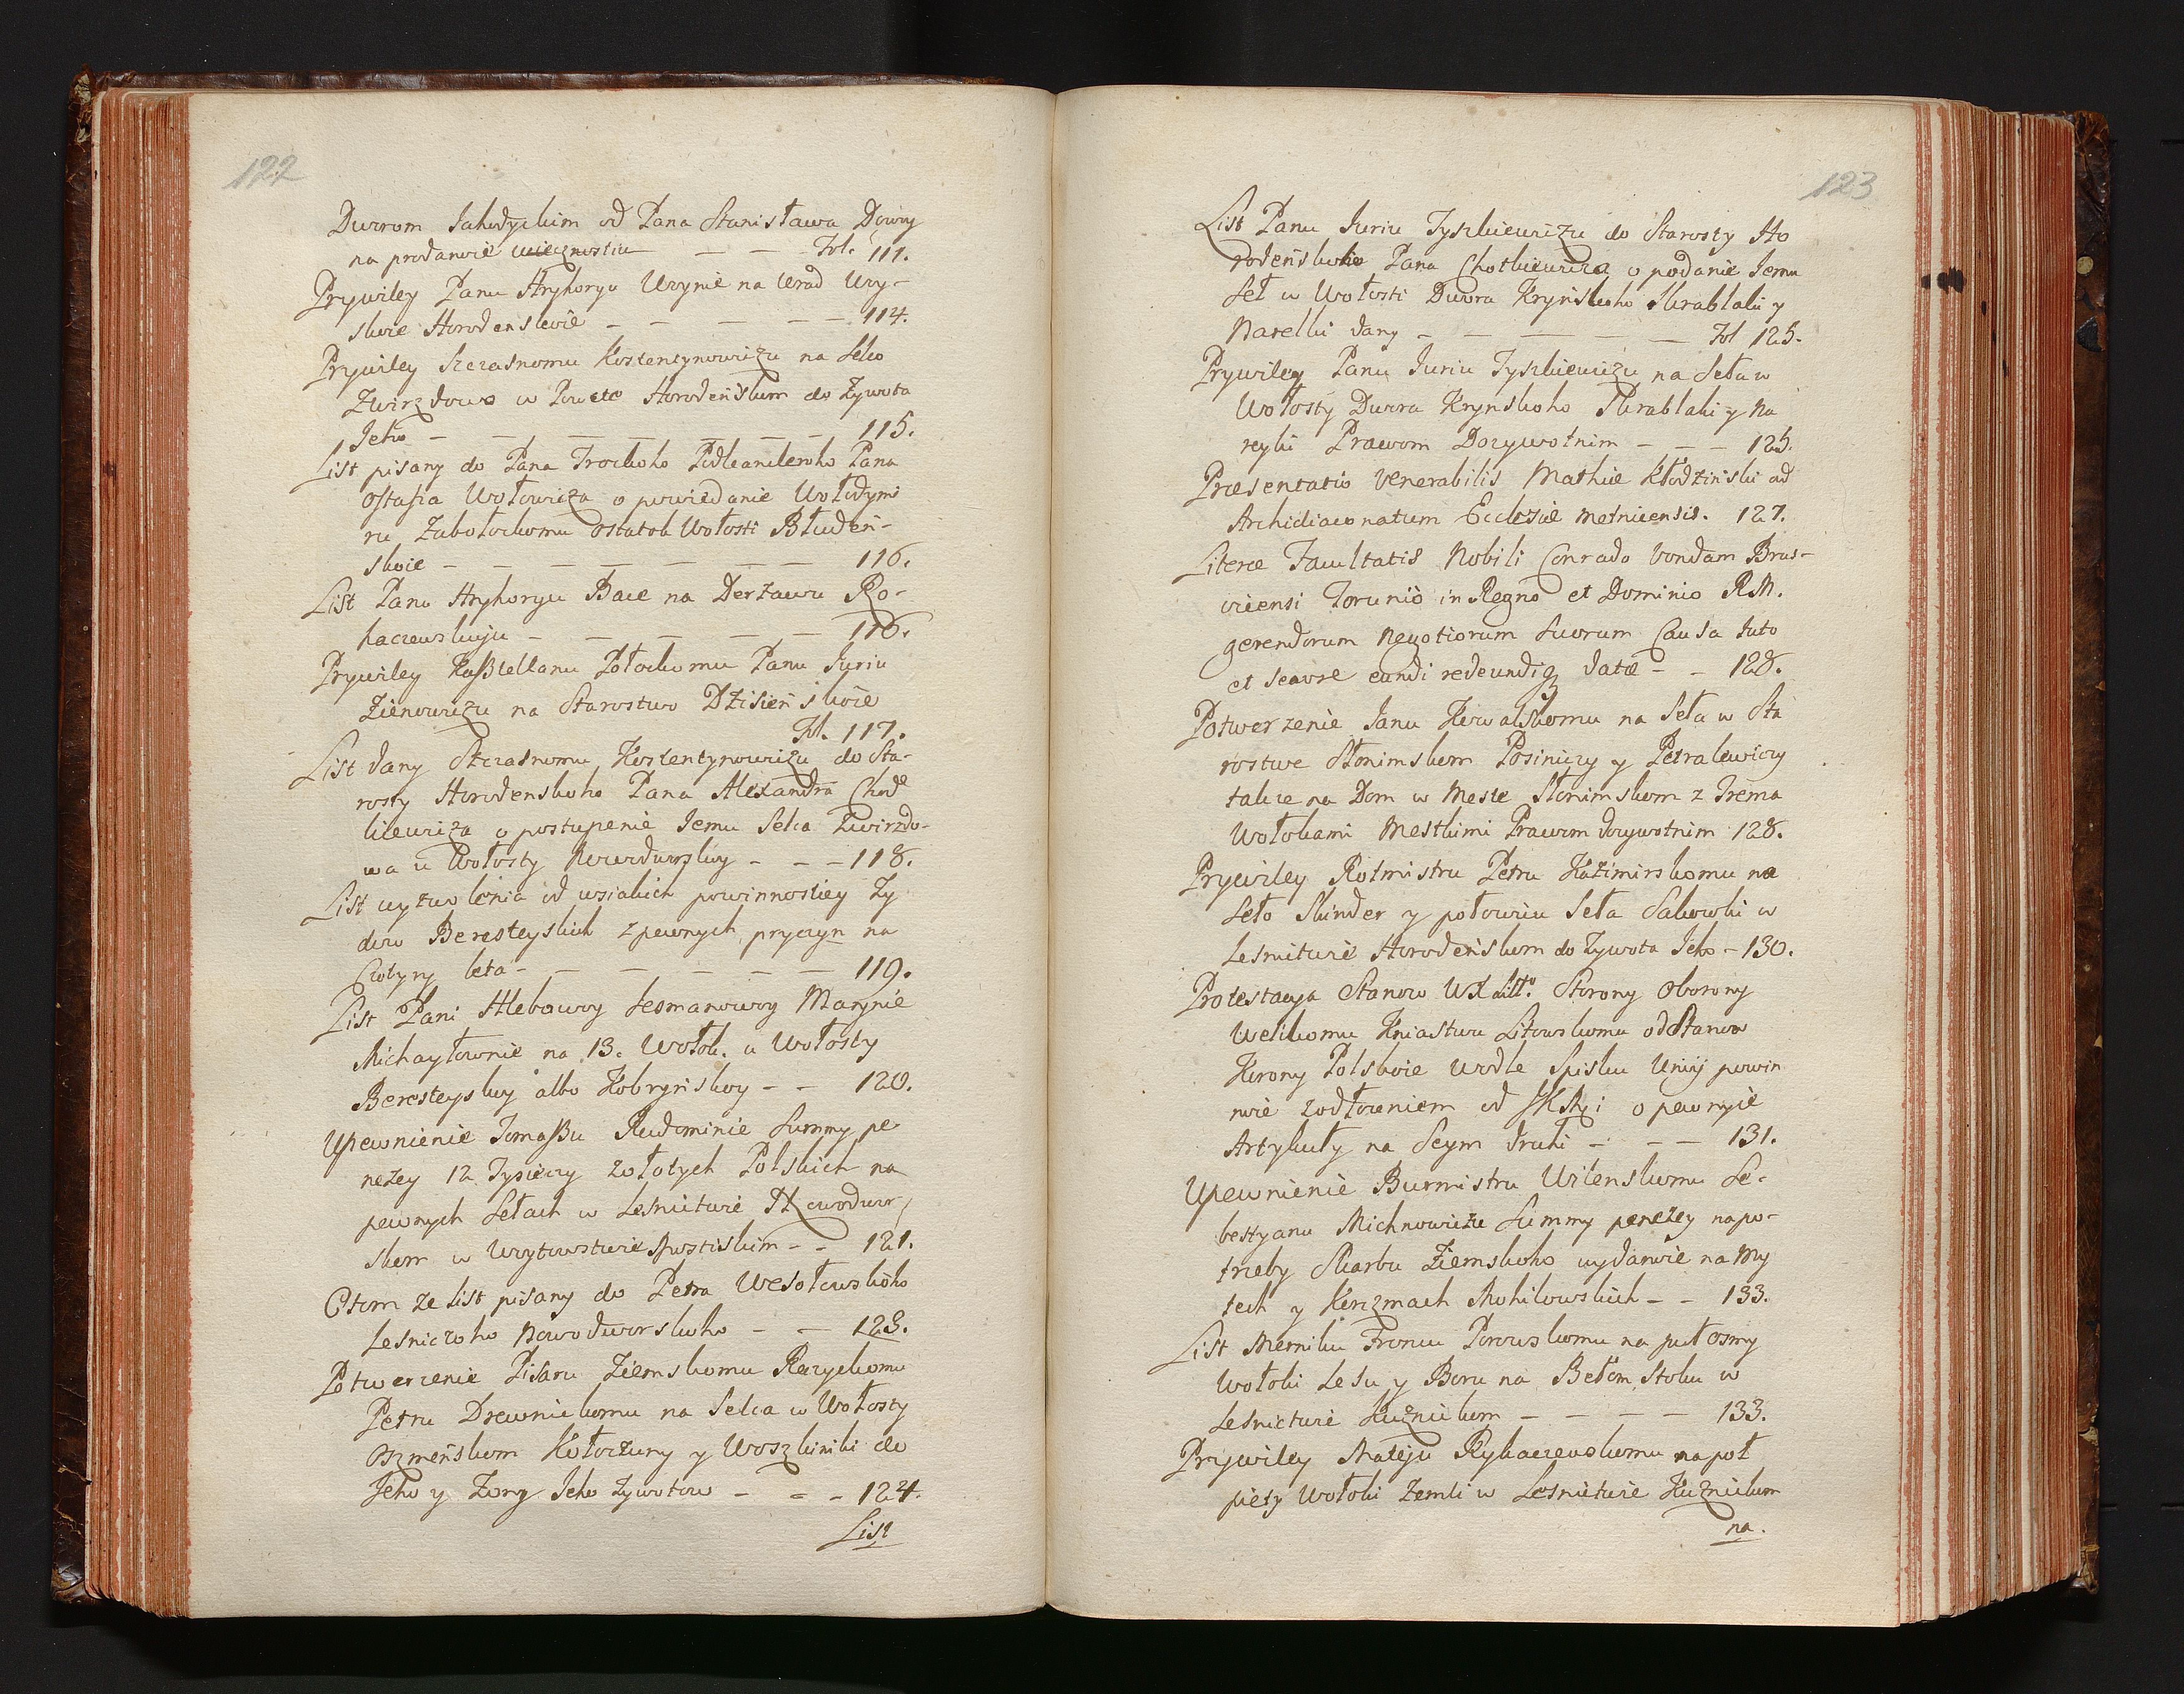 122
Dworom Sahodyckim od Pana Stanisława Dowoy
na prodanoie wiecznostiu — — Fol. 111.
Prywiley Panu Hryhoryu Urynie na Urad Ury-
skoie Horodenskoie — — — — 114.
Prywiley Szczasnomu Kostentynowiczu na Selco
Zwirzdowo w Powete Horodeńskum do Zywota
Jeho — — — — — — 115.
List pisany do Pana Trockoho Pidkancleroho Pana
Ostafia Wołowicza o powiedanie Wołodymi
ru Zabołockomu ostatok Wołosti Błudeń-
skoie — — — — — — 116.
List Panu Hryhoryu Bace na Derżawu Ro-
haczewskuju — — — — — 116.
Prywiley Kaßtellanu Połockomu Panu Juriu
Zienowiczu na Starostwo Dzisieńskoie
Fol. 117.
List dany Szczasnomu Kostentynowiczu do Sta-
rosty Horodenskoho Pana Alexandra Chod
kiewicza o postupenie Jemu Selca Zwirzdo-
wa u Wołosty Nowodworskoy — — — 118.
List wyzwolenia od wsiakich powinnostiey Ży
dow Beresteyskich z pewnych pryczyn na
Czotyry leta — — — — — — 119.
List Pani Hlebowoy Lesmanowoy Marynie
Michayłownie na 13. Wołok. u Wołosty
Beresteyskoy albo Kobryńskoy — — 120.
Upewnienie Tomaßu Rudominie Summy pe
nezey 12 Tysieczy zołotych Polskich na
pewnych Sełach w Lesnictwie Nowodwor,
skom w Woytowstwie — — 121.
O tom ze List pisany do Petra Wesołowskoho
Lesniczoho Nowodworskoho — — 123.
Potwerzenie Pisaru Ziemskomu Raryckomu
Petru Drewnickomu na Selca w Wołosty
Oszmeńskom Kołoczuny y Woszkiniki do
Jeho y Zony Jeho Zywotow — — — 124.
List
123
List Panu Juriu Tyszkiewiczu do Starosty Ho
rodeńskoho Pana Chotkiewicza o podanie Jemu
Seł w Wołosti Dwora Kryńskoho Skrablaki y
Narelki dany — — — — — Fol 125.
Prywiley Panu Juriu Tyszkiewiczu na Seła w
Wołosty Dwora Krynskoho Skrablaki y Na
reyki Prawom Dozywotnim — — — 125.
Præsentatio Venerabilis Mathiæ Kłodziński ad
Archidiaconatum Ecclesiæ Metnicensis. 127.
Literæ Facultatis Nobili Conrado Vondam Brus-
vicensi Torunio in Regno et Dominio R.M.
gerendorum Negotiorum Suorum Causa tuto
et secure eundi redeundiq datæ — — 128.
Potwerzenie Janu Kowalskomu na Seła w Sta
rostwe Słonimskom Posiniczy y Petralewiczy
takze na Dom w Meste Słonimskom z Trema
Wołokami Mestkimi Prawom dozywotnim 128.
Prywiley Rotmistru Petru Kazimirskomu na
Seło Skinder y połowicu Seła Sakowki w
Lesnictwie Horodeńskum do Zywota Jeho — 130.
Protestacya Stanow WX Litto. Storony Oborony
Welikomu Kniastwu Litowskomu od Stanow
Korony Polskoie wodle Spisku Uniij powin
noie zodłoceniem od JKMści o pewnyie
Artykuły na Seym Druhi — — — 131.
Upewnienie Burmistru Wilenskomu Se-
bestyanu Michnowiczu Summy penezey na po-
treby Skarbu Ziemskoho wydanoie na My
tech y Korczmach Mohilowskich — — 133.
List Merniku Froncu Porowskomu na puł osmy
Wołoki Lesu y Boru na Bełom Stoku w
Lesnictwie Kuznickom — — — — 133.
Prywiley Mateju Rykaczewskomu na poł
piety Wołoki Zemli w Lesnictwie Kuznickom
na.